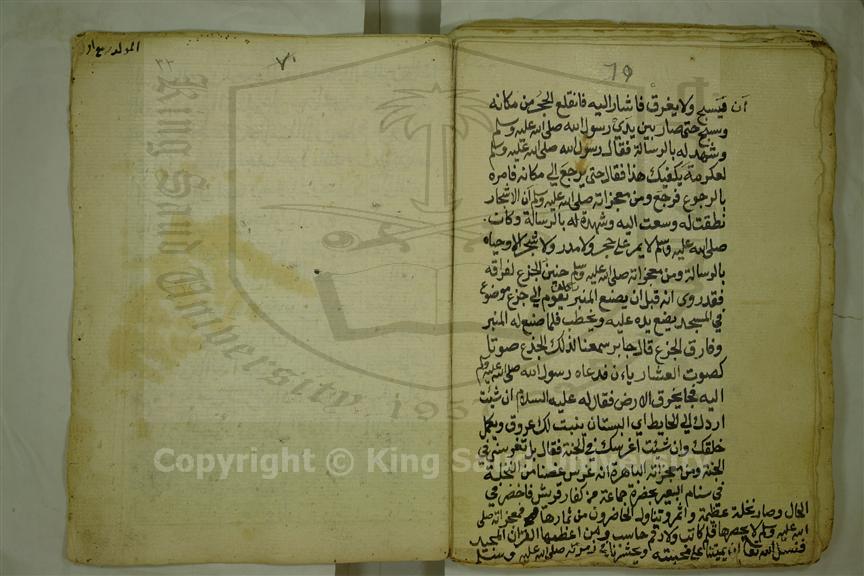 ٦٩
أن فيسبح ولا يغرق فأشار اليه فانقلع الحجر من مكانه
وسبح حتى صار بين يدي رسول الله صلى الله عليه وسلم
وشهد له بالرسالة فقال رسول الله صلى الله عليه وسلم
لعكرمة يكفيك هذا فقال حتى يرجع الى مكانه فامره
بالرجوع فرجع ومن معجزاته صلى الله عليه وسلم أن الاشجار
نطقت له وسعت اليه وشهدة له بالرسالة وكان
صلى الله عليه وسلم لا يمر على حجر ولا مدر ولا شجر الا وحياه
بالرسالة ومن معجزاته صلى الله عليه وسلم حنين الجزع لفراقه
فقد روى انه قبل ان يصنع المنبر كان يقوم الى جزع موضوع
في المسجد يضع يده عليه ويخطب فلما صنع له المنبر
وفارق الجزع قال جابر سمعنا لذلك الجذع صوتا
كصوت العشار فدعاه رسول الله صلى الله عليه وسلم
اليه فجا يخرق الارض فقال له عليه السلام ان شئت
اردك الى الحايط اي البستان ينبت لك عروق ويكمل
خلقك وان شئت اغرسك في الجنة فقال بل تغرسني في
الجنة ومن معجزاته الباهرة انه غرس غصنا من النخلة
في سنام البعير بحضرة جماعة من كفار قريش فاخضر في
الحال وصار نخلة عظيمة واثمر وتناول الحاضرون من ثمارها فمعجزاته صلى
الله عليه وسلم لا يحصرها قلم كاتب ولا رقم حاسب ومن اعظمها القرآن المجيد
فنسل الله تعالى ان يميتنا على محبته ويحشرنا في زمرته صلى الله عليه وسلم
٧٠
٣٣
المولد
King Saud University
1957
Copyright © King Saud University